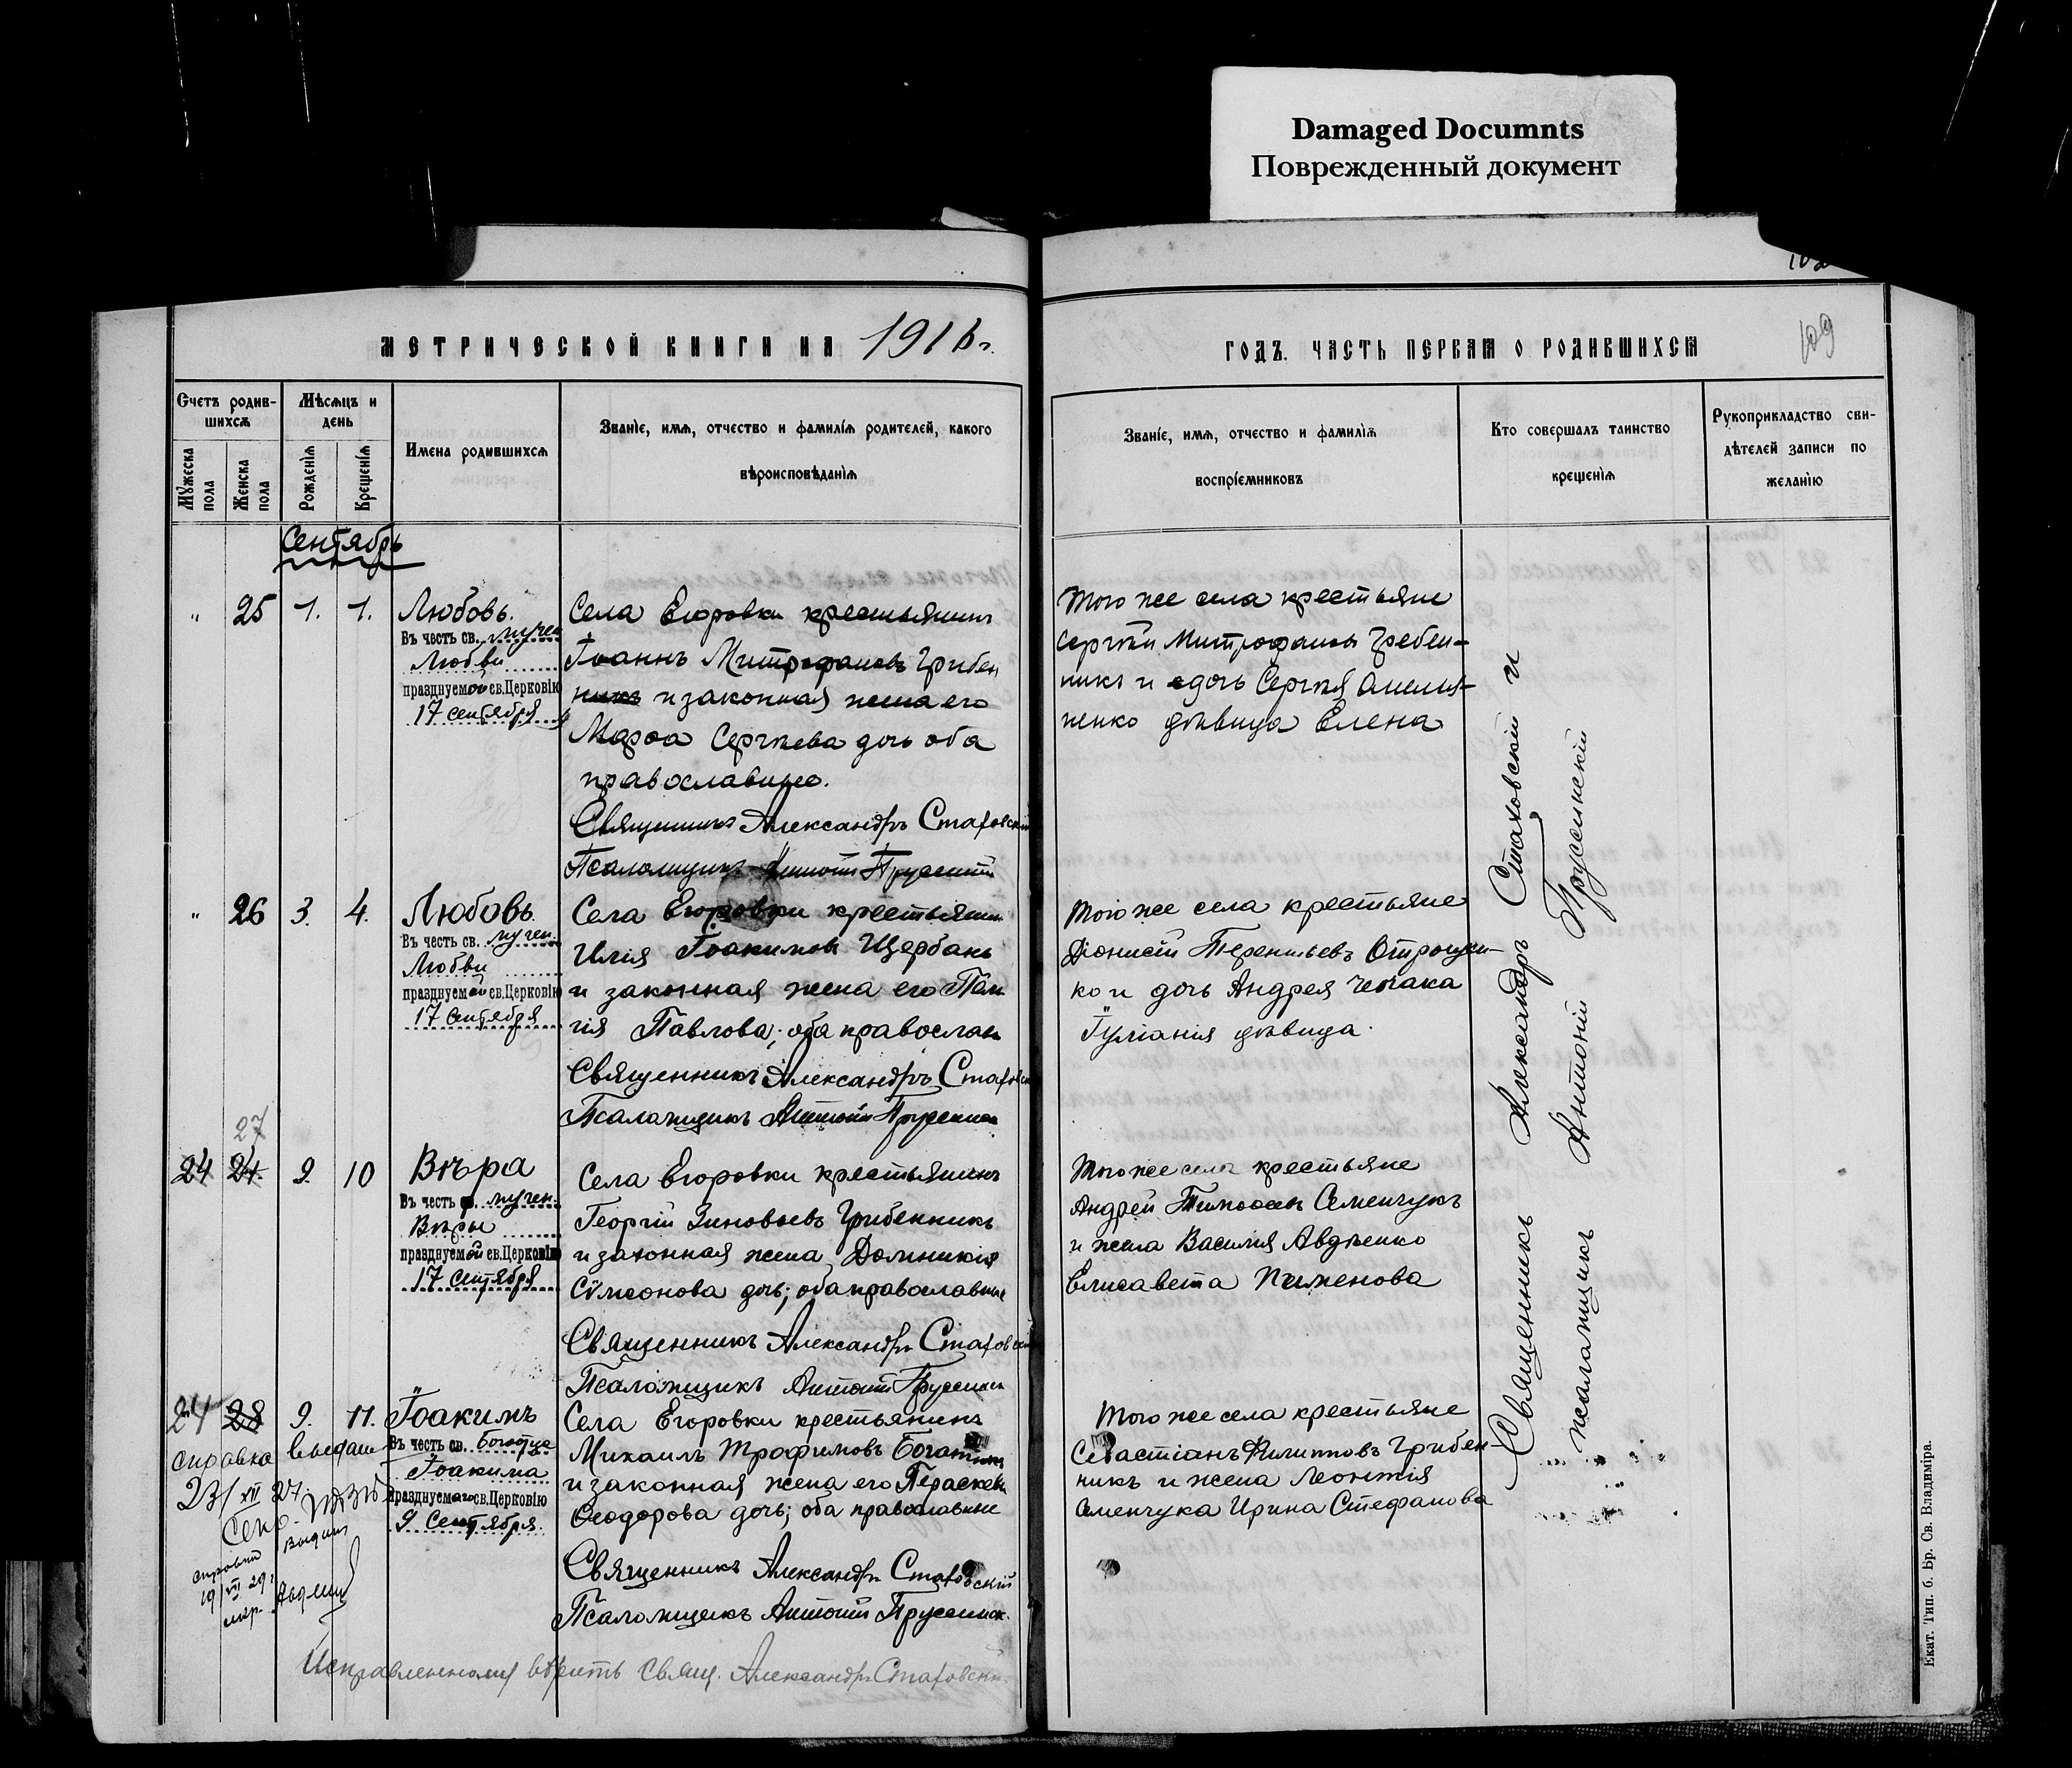 Damaged Documnts
Поврежденный документ
МЕТРИЧЕСКОЙ КНИГИ НА 1916 г.
ГОДЪ. ЧАСТЬ ПЕРВАЯ О РОДИВШИХСЯ
109
Счетъ родив-
шихся
Мѣсяцъ и
день
Мужеска
пола
Женска
пола
Рожденія
Крещенія
Имена родившихся
Званіе, имя, отчество и фамилія родителей, какого
вѣроисповѣданія
Званіе, имя, отчество и фамилія
воспріемниковъ
Кто совершалъ таинство
крещенія
Рукоприкладство сви-
дѣтелей записи по
желанію
Сентябрь
" 25 1. 1. Любовь.
Въ честь св. мучен
Любви
празднуемой св. Церковію
17 сентября
Села Егоровки крестьянинъ
Іоаннъ Митрофановъ Грибен
никъ и законная жена его
Марѳа Сергѣева дочь оба
православные.
Священникъ Александръ Стаховскій
Псаломщикъ Антоній Прусинскій
Того же села крестьяне
Сергѣй Митрофановъ Гребен-
никъ и дочь Сергѣя Амелья-
ненко дѣвица Елена
" 26 3. 4. Любовь.
Въ честь св. мучен.
Любви
празднуемой св. Церковію
17 Сентября
Села Егоровки крестьянин
Илія Іоакимовъ Щербань
и законная жена его Пела
гія Павлова; оба православн
Священникъ Александръ Стаховск
Псаломщикъ Антоній Прусинск
Того же села крестьяне
Діонисій Терентьевъ Отрощен-
ко и дочь Андрея Чепака
Іуліанія дѣвица.
27
24 24. 9. 10 Вѣра
Въ честь св. мучен.
Вѣры
празднуемой св. Церковію
17 Сентября
Села Егоровки крестьянинъ
Георгій Зиновьевъ Грибенникъ
и законная жена Домникія
Сѵмеонова дочь; оба православные
Священникъ Александръ Стаховскій
Псаломщикъ Антоній Прусинск
Того же села крестьяне
Андрей Тимоѳеевъ Семенчукъ
и жена Василія Авдѣенко
Елисавета Пименова
24 28 9. 11. Іоакимъ
Въ честь св. Богоотца
Іоакима
празднуемаго св. Церковію
9 Сентября.
Села Егоровки крестьянинъ
Михаилъ Трофимовъ Богатинъ
и законная жена его Параскева
Ѳеодорова дочь; оба православные
Священникъ Александръ Стаховскій
Псаломщикъ Антоній Прусинск.
Того же села крестьяне
Севастіанъ Филипповъ Грибен-
никъ и жена Леонтія
Семенчука Ирина Стефанова
справка выдана
23/XII 27
Секр.
справка выдана
19/VII 29 г.
Исправленному вѣрить Свящ. Александръ Стаховскій
Священникъ Александръ Стаховскій и
псаломщикъ Антоній Прусинскій
Екат. Тип. б. Бр. Св. Владиміра.